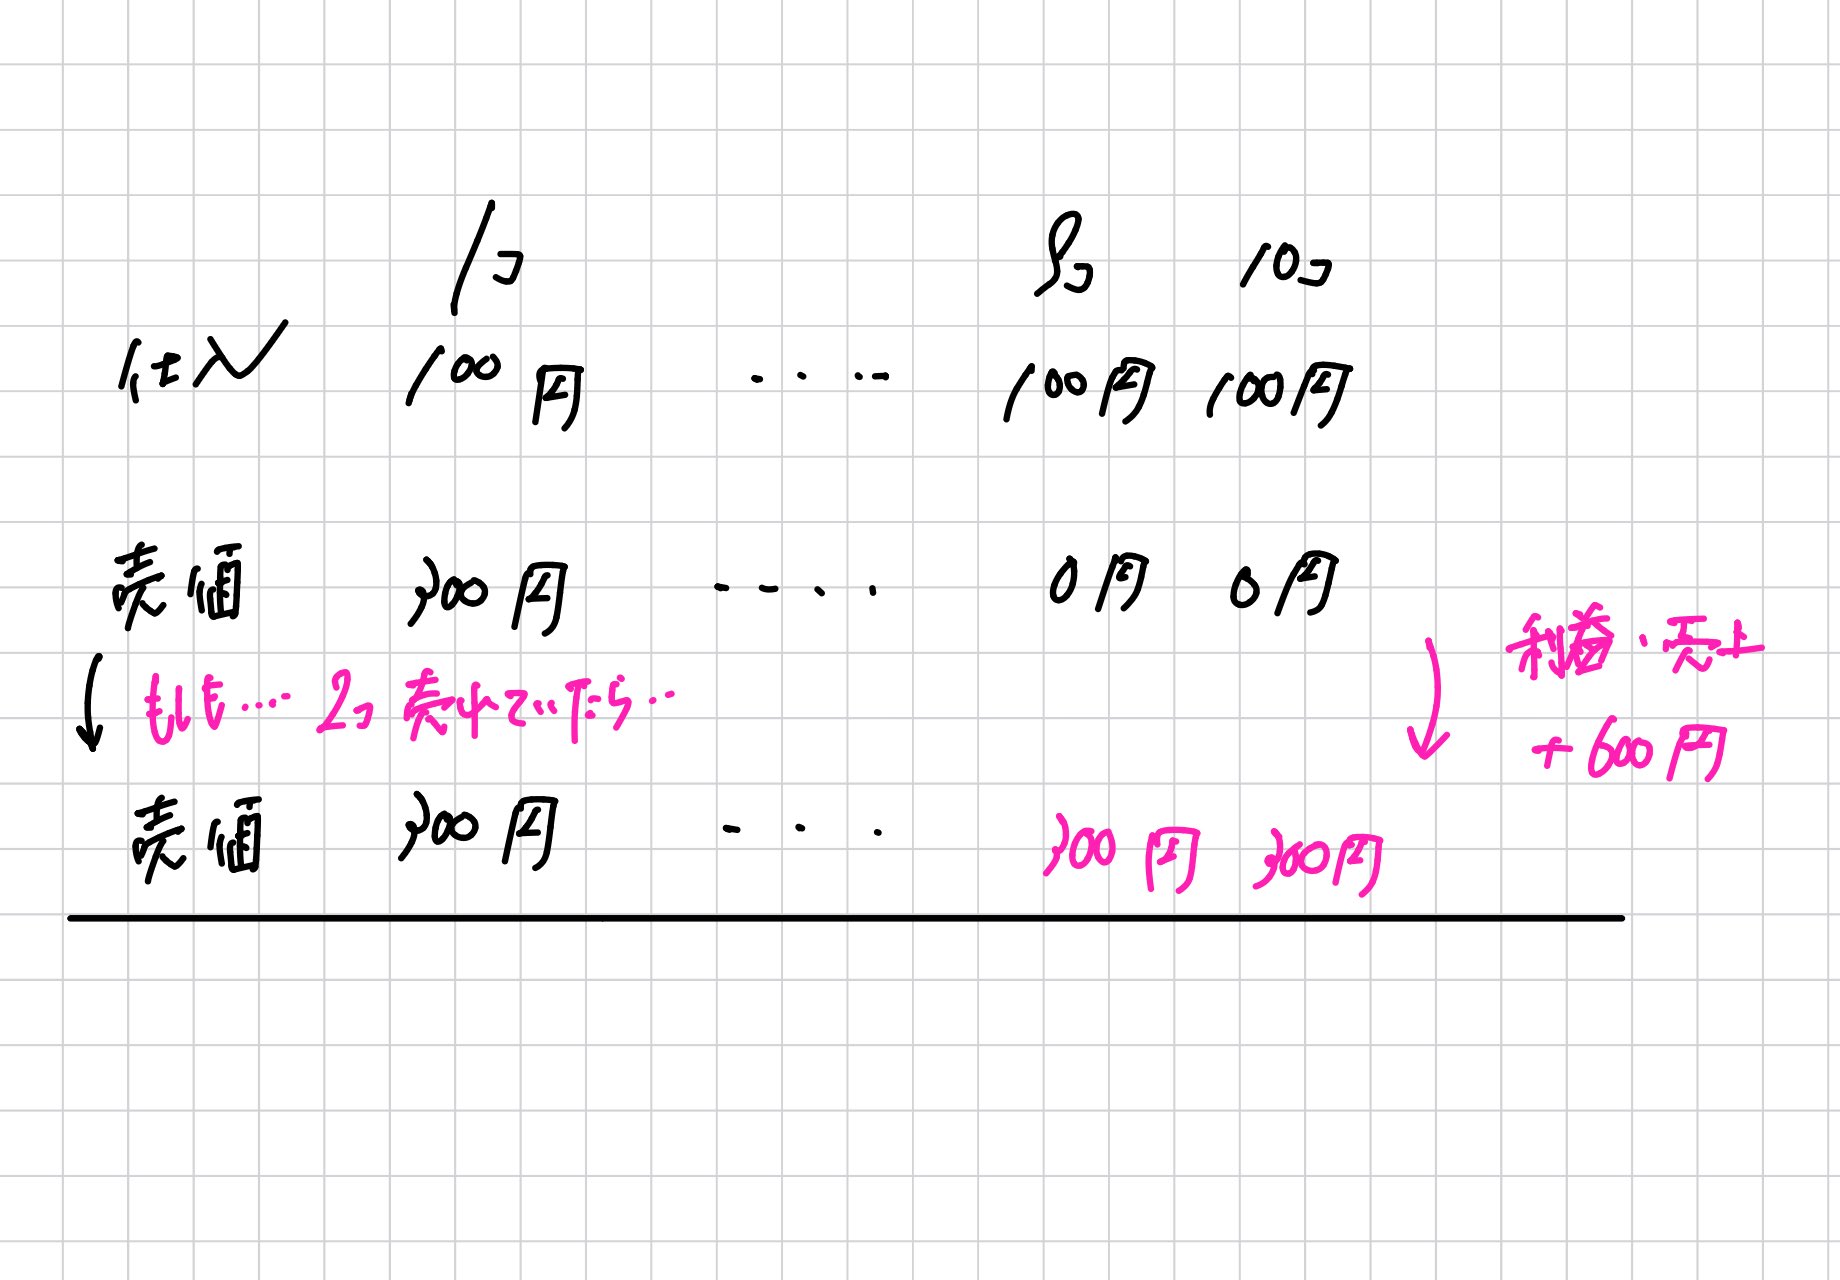 1コ 9コ 10コ
仕入 100円 ・・・・ 100円 100円
売値 300円 ・・・・ 0円 0円
もしも… 2コ売れていたら…
利益・売上
+600円
売値 300円 ・・・ 300円 300円